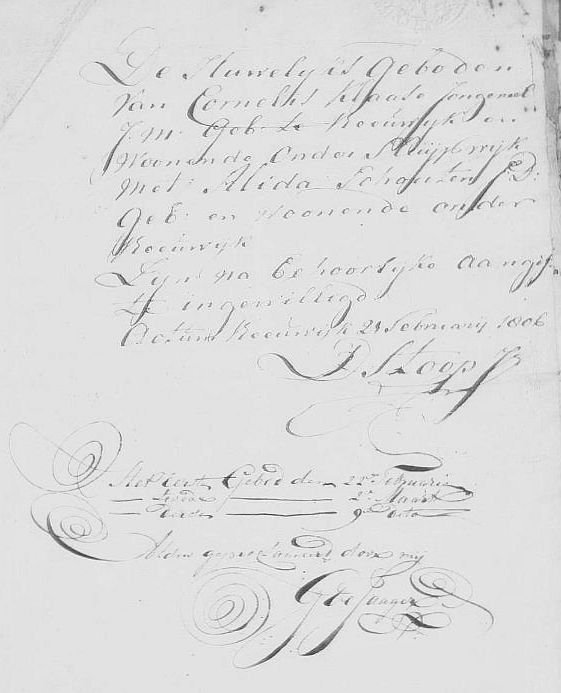 De Huwelyks Geboden
Van Cornelis Klaase Jongeneel
J.M. Geb. te Reeuwyk en
Woonende Onder Sluypwyk
Met Alida Schouten J:D:
Geb: en Woonende onder
Reeuwyk
Zyn na behoorlyke aangif
te ingewilligd
Actum Reeuwyk 21 Februarij 1806
D Stoop Jz
Het Eerste Gebod den 23e Februarij
— tweede — 2e Maart
— derde — 9e Dito
Aldus geproclameert door my
G de Jaager